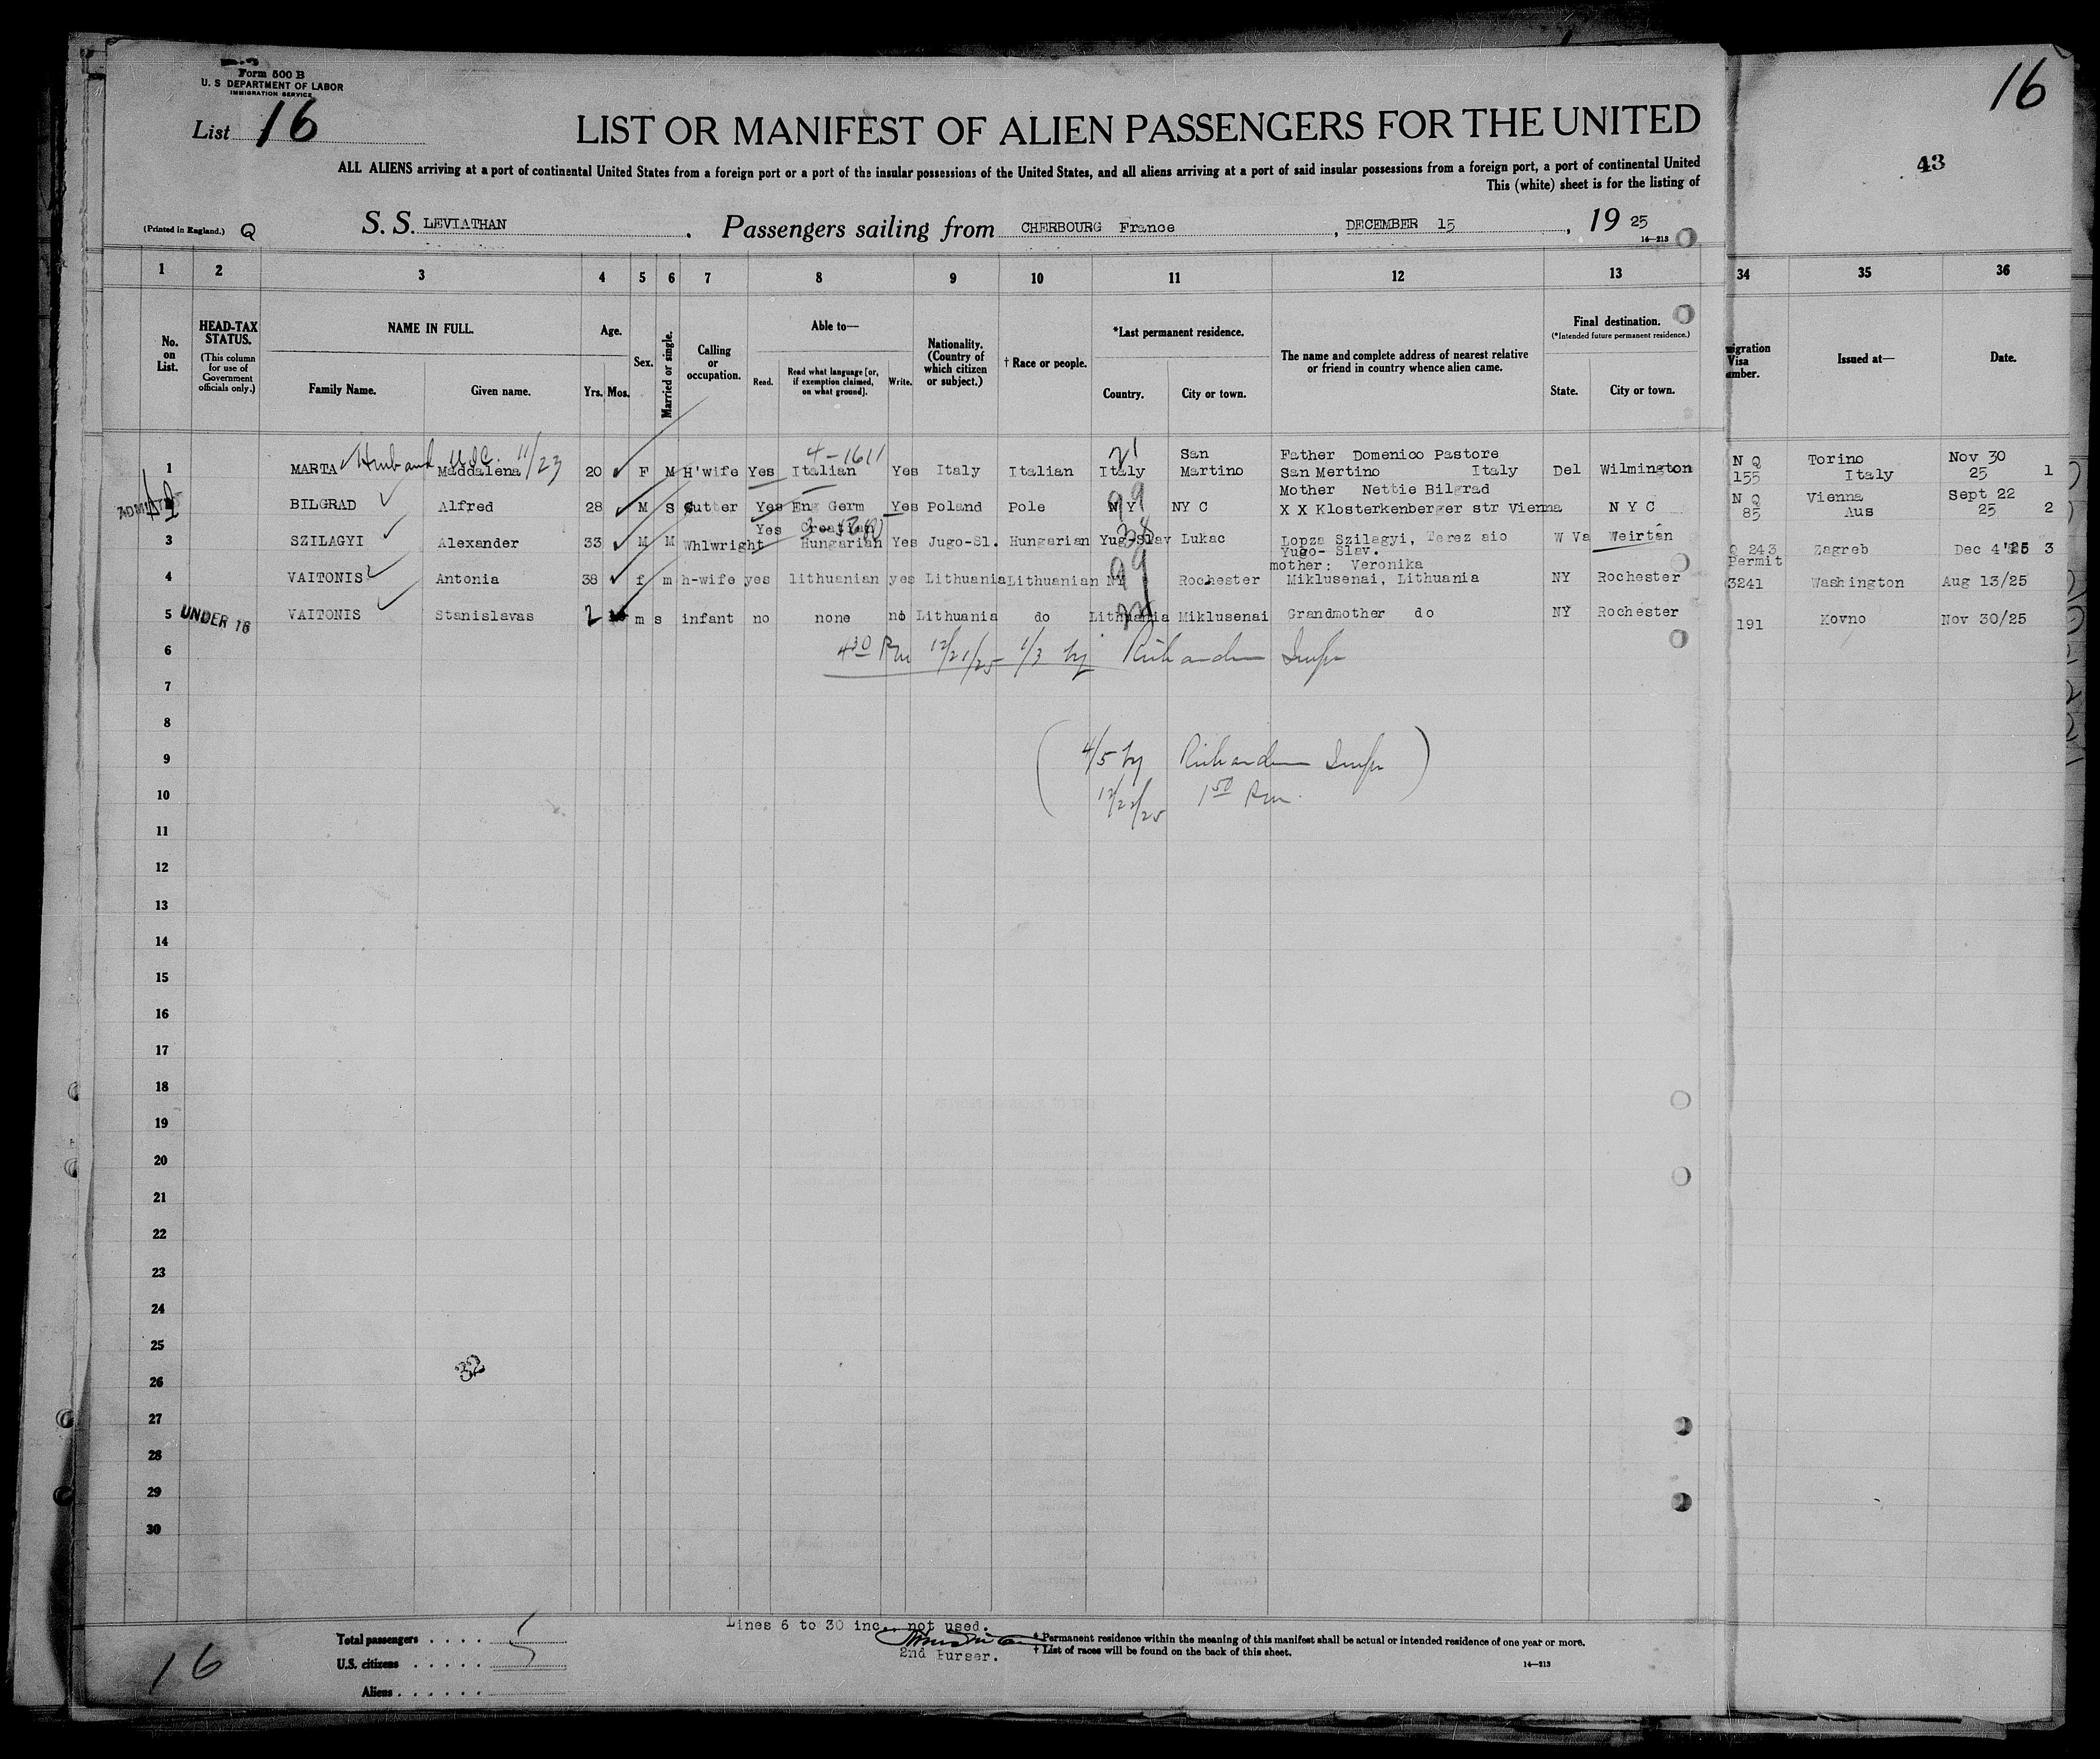 Form 500 B
U. S DEPARTMENT OF LABOR
IMMIGRATION SERVICE
List 16
LIST OR MANIFEST OF ALIEN PASSENGERS FOR THE UNITED
16
43
ALL ALIENS arriving at a port of continental United States from a foreign port or a port of the insular possessions of the United States, and all aliens arriving at a port of said insular possessions from a foreign port, a port of continental United
This (white) sheet is for the listing of
(Printed in England.) Q S. S. LEVIATHAN . Passengers sailing from CHERBOURG France , DECEMBER 15 , 19 25
14—213
1 2 3 4 5 6 7 8 9 10 11 12 13 34 35 36
No. on List.
HEAD-TAX STATUS.
(This column for use of Government officials only.)
NAME IN FULL.
Family Name. Given name.
Age.
Yrs. Mos.
Sex.
Married or single.
Calling or occupation.
Able to—
Read. Read what language [or, if exemption claimed, on what ground]. Write.
Nationality. (Country of which citizen or subject.)
† Race or people.
*Last permanent residence.
Country. City or town.
The name and complete address of nearest relative or friend in country whence alien came.
Final destination.
(*Intended future permanent residence.)
State. City or town.
migration Visa umber.
Issued at—
Date.
Husband U.S.C. 11/23 4-1611 21
1 MARTA Maddalena 20 F M H'wife Yes Italian Yes Italy Italian Italy San Martino Father Domenico Pastore San Mertino Italy Del Wilmington N Q 155 Torino Italy Nov 30 25 1
ADMITTED
99
2 BILGRAD Alfred 28 M S Cutter Yes Eng Germ Yes Poland Pole N Y NY C Mother Nettie Bilgrad X X Klosterkenberger str Vienna N Y C N Q 85 Vienna Aus Sept 22 25 2
38
3 SZILAGYI Alexander 33 M M Whlwright Yes Hungarian Yes Jugo-Sl. Hungarian Yugo-Slav Lukac Lopza Szilagyi, Terez aio Yugo- Slav. W Va Weirton Q 243 Zagreb Dec 4'25 3
99
4 VAITONIS Antonia 38 f m h-wife yes lithuanian yes Lithuania Lithuanian NY Rochester mother: Veronika Miklusenai, Lithuania NY Rochester Permit 3241 Washington Aug 13/25
5 UNDER 16 VAITONIS Stanislavas 2 m s infant no none no Lithuania do Lithuania Miklusenai Grandmother do NY Rochester 191 Kovno Nov 30/25
6 4 30 Pm 12/21/25 1/3 by Richardson Inspr
7
8
9 (4/5 by Richardson Inspr
10 12/22/25 1 50 Pm)
11
12
13
14
15
16
17
18
19
20
21
22
23
24
25
32
26
27
28
29
30
Lines 6 to 30 inc. not used.
2nd Purser.
Total passengers . . . . 5
U.S. citizens . . . . .
Aliens . . . . . .
16
* Permanent residence within the meaning of this manifest shall be actual or intended residence of one year or more.
† List of races will be found on the back of this sheet.
14—213